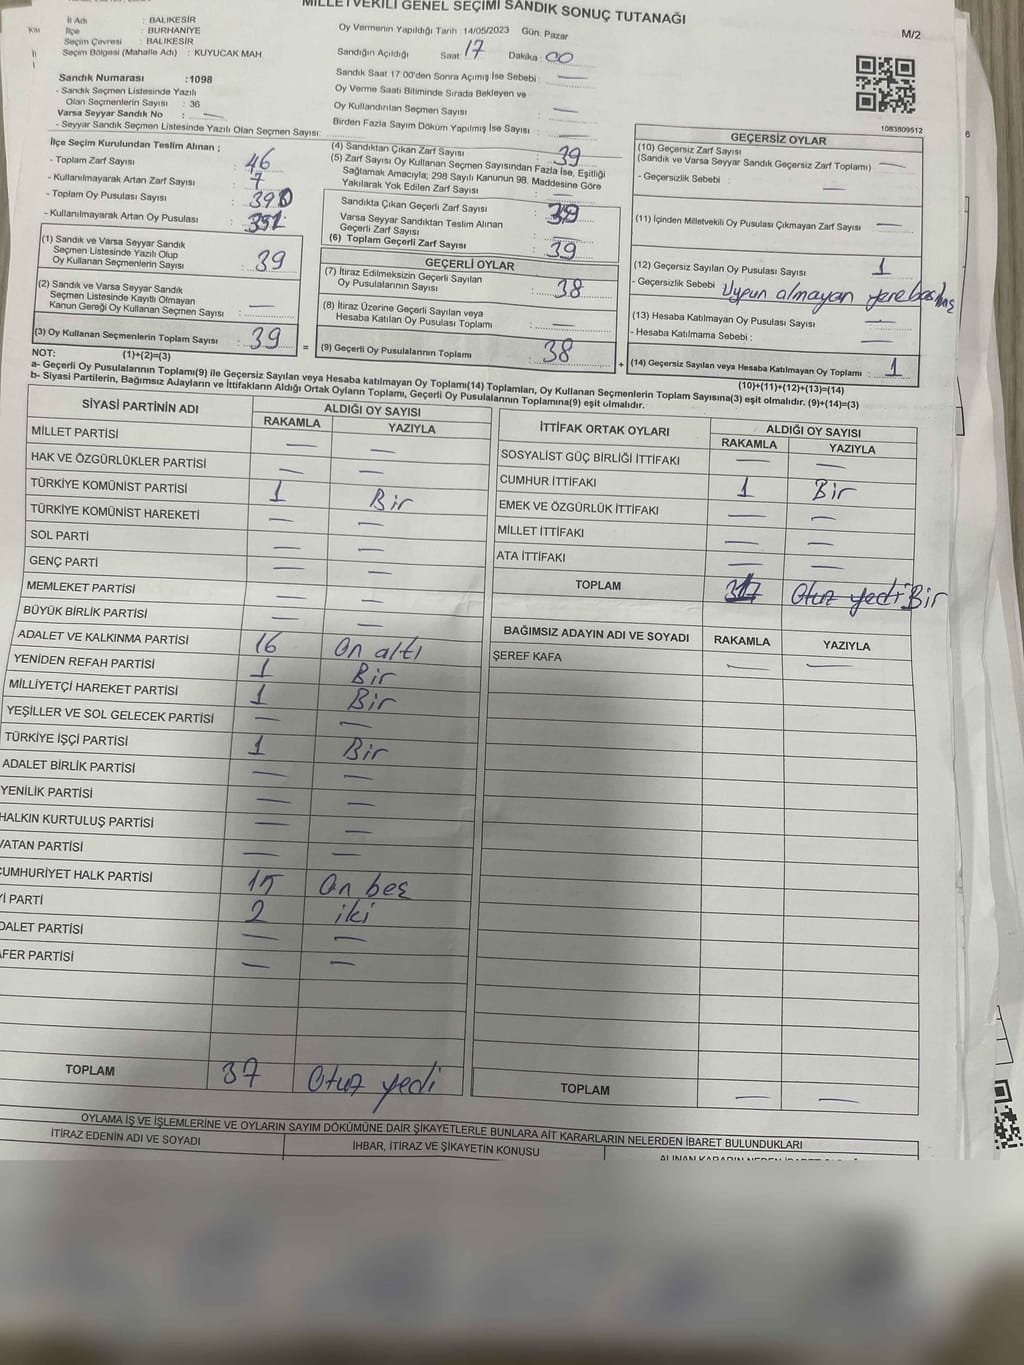 MİLLETVEKİLİ GENEL SEÇİMİ SANDIK SONUÇ TUTANAĞI
M/2
İl Adı : BALIKESİR
İlçe : BURHANİYE
Seçim Çevresi : BALIKESİR
Seçim Bölgesi (Mahalle Adı) : KUYUCAK MAH
Sandık Numarası :1098
- Sandık Seçmen Listesinde Yazılı
Olan Seçmenlerin Sayısı : 36
Varsa Seyyar Sandık No : —
- Seyyar Sandık Seçmen Listesinde Yazılı Olan Seçmen Sayısı:
Oy Vermenin Yapıldığı Tarih 14/05/2023 Gün Pazar
Sandığın Açıldığı Saat 17 Dakika 00
Sandık Saat 17 00'den Sonra Açımış İse Sebebi : —
Oy Verme Saati Bitiminde Sırada Bekleyen ve
Oy Kullandırılan Seçmen Sayısı : —
Birden Fazla Sayım Döküm Yapılmış İse Sayısı : —
1083809512
İlçe Seçim Kurulundan Teslim Alınan ;
- Toplam Zarf Sayısı : 46
- Kullanılmayarak Artan Zarf Sayısı : 7
- Toplam Oy Pusulası Sayısı : 390
- Kullanılmayarak Artan Oy Pusulası : 351
(1) Sandık ve Varsa Seyyar Sandık
Seçmen Listesinde Yazılı Olup
Oy Kullanan Seçmenlerin Sayısı : 39
(2) Sandık ve Varsa Seyyar Sandık
Seçmen Listesinde Kayıtlı Olmayan
Kanun Gereği Oy Kullanan Seçmen Sayısı : —
(3) Oy Kullanan Seçmenlerin Toplam Sayısı : 39
(1)+(2)=(3)
(4) Sandıktan Çıkan Zarf Sayısı : 39
(5) Zarf Sayısı Oy Kullanan Seçmen Sayısından Fazla İse, Eşitliği
Sağlamak Amacıyla; 298 Sayılı Kanunun 98. Maddesine Göre
Yakılarak Yok Edilen Zarf Sayısı : —
Sandıkta Çıkan Geçerli Zarf Sayısı : 39
Varsa Seyyar Sandıktan Teslim Alınan
Geçerli Zarf Sayısı : —
(6) Toplam Geçerli Zarf Sayısı : 39
GEÇERLİ OYLAR
(7) İtiraz Edilmeksizin Geçerli Sayılan
Oy Pusulalarının Sayısı : 38
(8) İtiraz Üzerine Geçerli Sayılan veya
Hesaba Katılan Oy Pusulası Toplamı : —
= (9) Geçerli Oy Pusulalarının Toplamı : 38
GEÇERSİZ OYLAR
(10) Geçersiz Zarf Sayısı
(Sandık ve Varsa Seyyar Sandık Geçersiz Zarf Toplamı) : —
- Geçersizlik Sebebi : —
(11) İçinden Milletvekili Oy Pusulası Çıkmayan Zarf Sayısı : —
(12) Geçersiz Sayılan Oy Pusulası Sayısı : 1
- Geçersizlik Sebebi : Uygun olmayan yere basılmış
(13) Hesaba Katılmayan Oy Pusulası Sayısı : —
- Hesaba Katılmama Sebebi : —
+ (14) Geçersiz Sayılan veya Hesaba Katılmayan Oy Toplamı : 1
(10)+(11)+(12)+(13)=(14)
NOT:
a- Geçerli Oy Pusulalarının Toplamı(9) ile Geçersiz Sayılan veya Hesaba katılmayan Oy Toplamı(14) Toplamları, Oy Kullanan Seçmenlerin Toplam Sayısına(3) eşit olmalıdır. (9)+(14)=(3)
b- Siyasi Partilerin, Bağımsız Adayların ve İttifakların Aldığı Ortak Oyların Toplamı, Geçerli Oy Pusulalarının Toplamına(9) eşit olmalıdır.
SİYASİ PARTİNİN ADI ALDIĞI OY SAYISI
RAKAMLA YAZIYLA
MİLLET PARTİSİ — —
HAK VE ÖZGÜRLÜKLER PARTİSİ — —
TÜRKİYE KOMÜNİST PARTİSİ 1 Bir
TÜRKİYE KOMÜNİST HAREKETİ — —
SOL PARTİ — —
GENÇ PARTİ — —
MEMLEKET PARTİSİ — —
BÜYÜK BİRLİK PARTİSİ — —
ADALET VE KALKINMA PARTİSİ 16 On altı
YENİDEN REFAH PARTİSİ 1 Bir
MİLLİYETÇİ HAREKET PARTİSİ 1 Bir
YEŞİLLER VE SOL GELECEK PARTİSİ — —
TÜRKİYE İŞÇİ PARTİSİ 1 Bir
ADALET BİRLİK PARTİSİ — —
YENİLİK PARTİSİ — —
HALKIN KURTULUŞ PARTİSİ — —
VATAN PARTİSİ — —
CUMHURİYET HALK PARTİSİ 15 On beş
Yİ PARTİ 2 iki
DALET PARTİSİ — —
AFER PARTİSİ — —
TOPLAM 37 Otuz yedi
İTTİFAK ORTAK OYLARI ALDIĞI OY SAYISI
RAKAMLA YAZIYLA
SOSYALİST GÜÇ BİRLİĞİ İTTİFAKI — —
CUMHUR İTTİFAKI 1 Bir
EMEK VE ÖZGÜRLÜK İTTİFAKI — —
MİLLET İTTİFAKI — —
ATA İTTİFAKI — —
TOPLAM Otuz yedi Bir
BAĞIMSIZ ADAYIN ADI VE SOYADI RAKAMLA YAZIYLA
ŞEREF KAFA — —
TOPLAM — —
OYLAMA İŞ VE İŞLEMLERİNE VE OYLARIN SAYIM DÖKÜMÜNE DAİR ŞİKAYETLERLE BUNLARA AİT KARARLARIN NELERDEN İBARET BULUNDUKLARI
İTİRAZ EDENİN ADI VE SOYADI İHBAR, İTİRAZ VE ŞİKAYETİN KONUSU